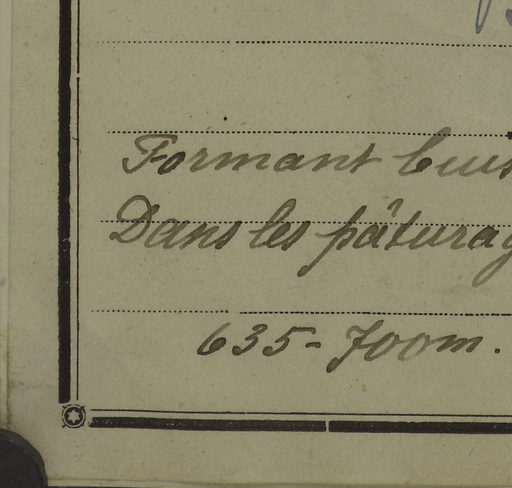 Formant buis
Dans les pâturag
635-700m.